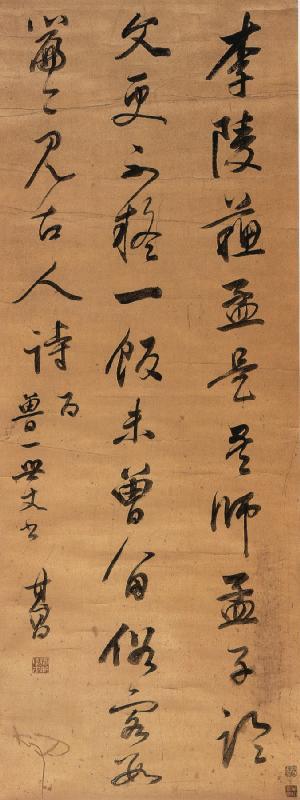 李陵蘇武是吾師孟子論
文更不疑一飯未曾留俗客數
篇今見古人詩 為
魯一世丈書 其昌